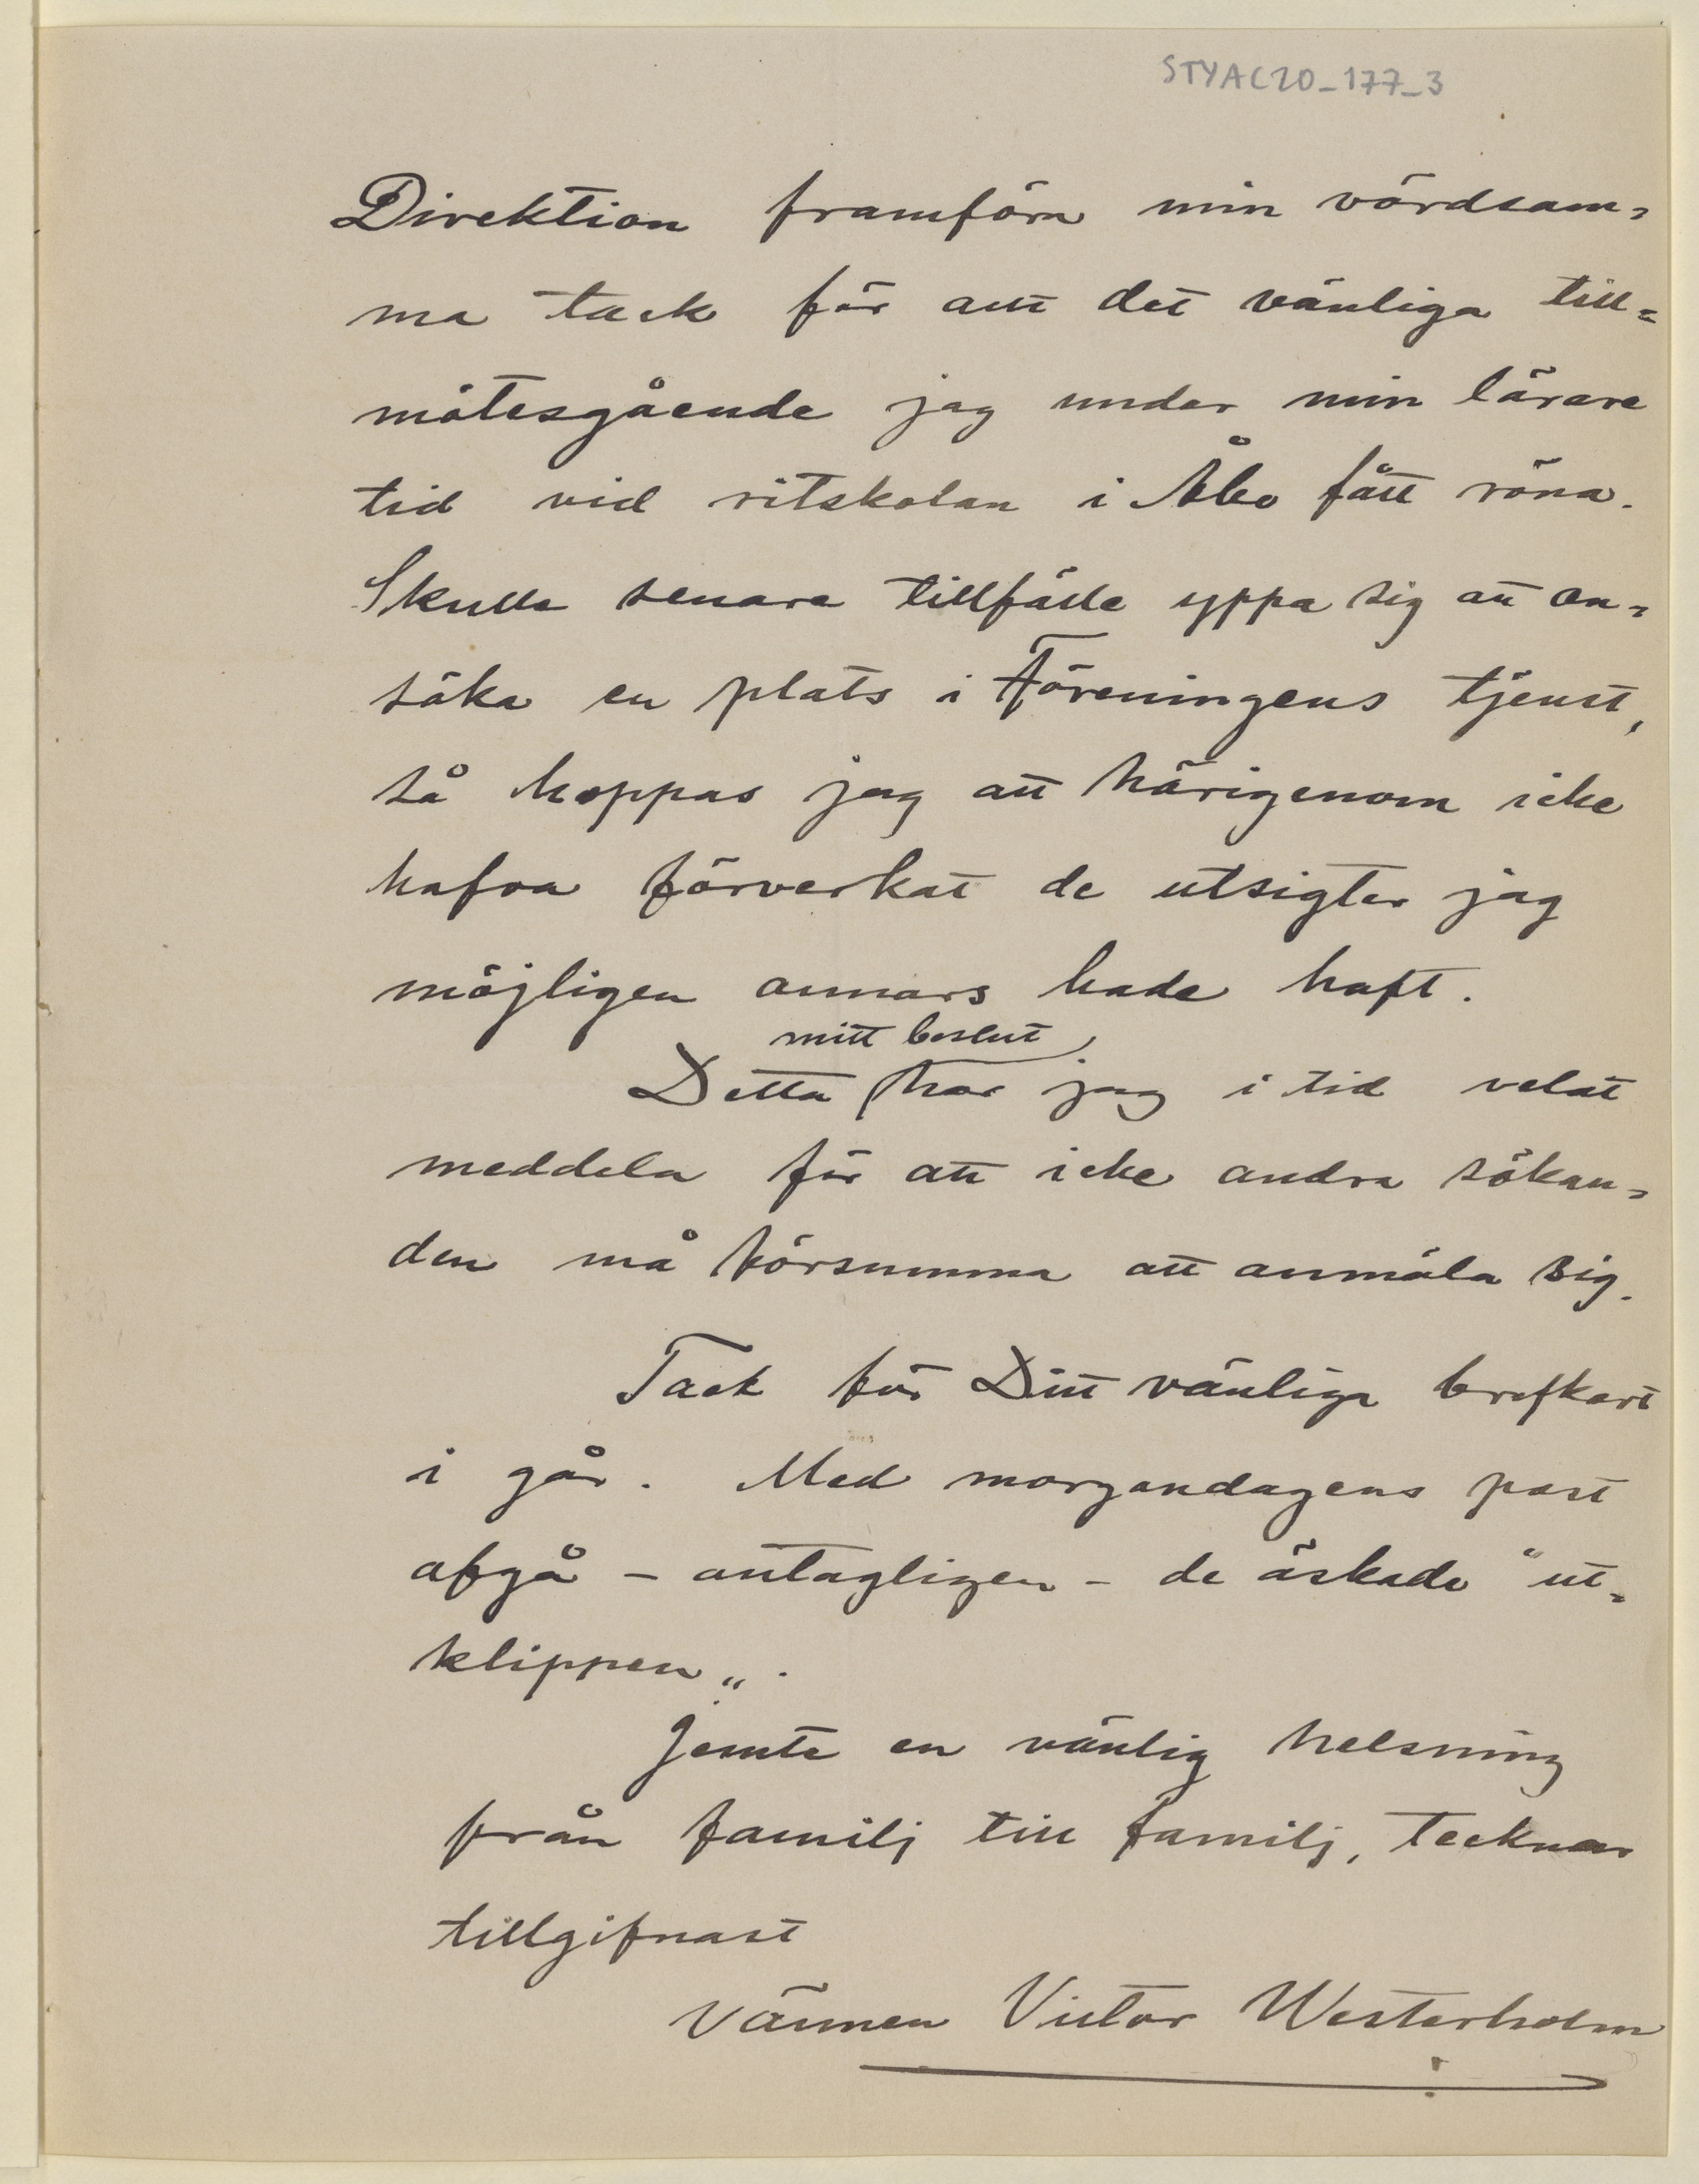 STYAC20_177_3
Direktion framföra min vördsam=
ma tack för allt det vänliga till=
mötesgående jag under min lärare
tid vid ritskolan i Åbo fått röna.
Skulle senare tillfälle yppa sig att an=
söka en plats i Föreningens tjenst,
så hoppas jag att härigenom icke
hafva förverkat de utsigter jag
möjligen annars hade haft.
mitt beslut
Detta har jag i tid velat
meddela för att icke andra sökan=
den må försumma att anmäla sig.
Tack för Ditt vänliga brefkort
i går. Med morgondagens post
afgå – antagligen – de äskade "ut=
klippen„.
Jemte en vänlig helsning
från familj till familj, tecknar
tillgifnast
vännen Victor Westerholm